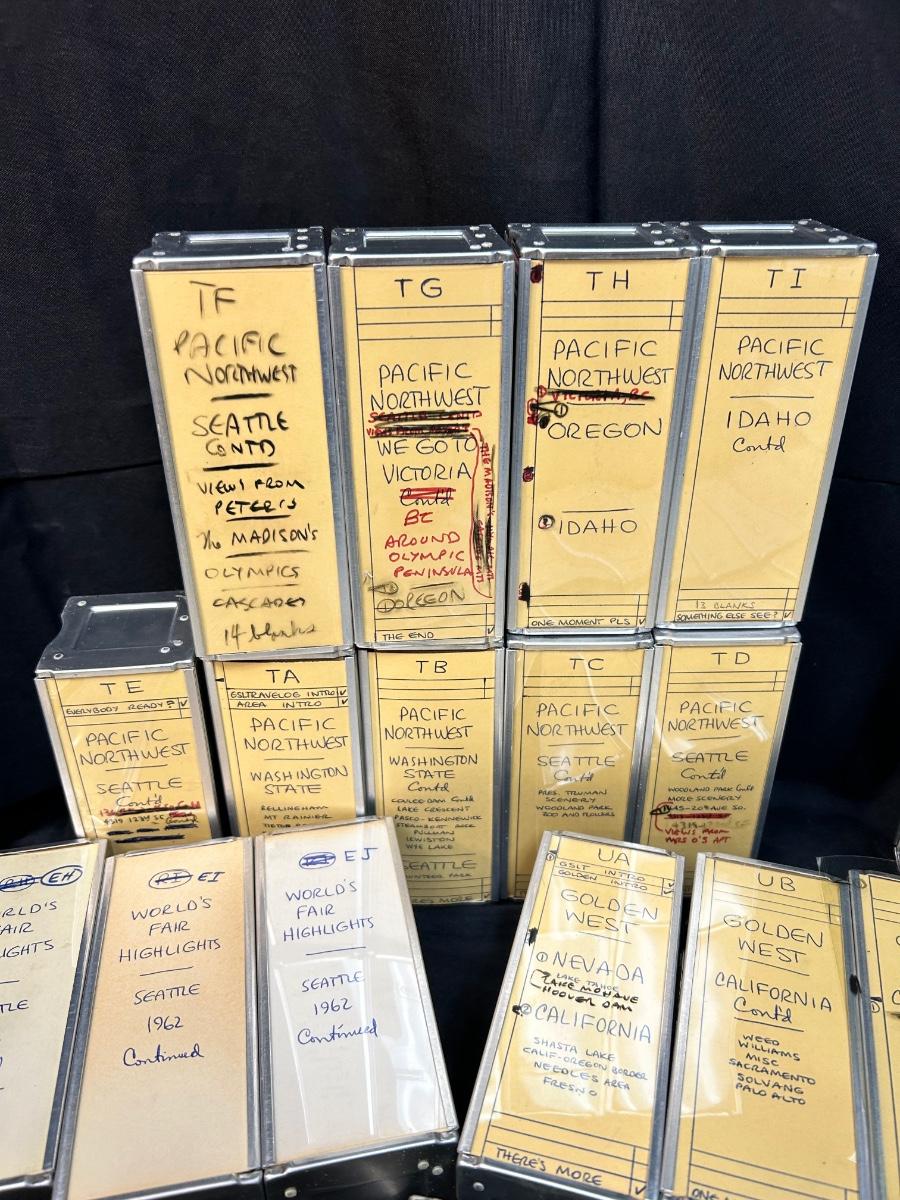 TF
PACIFIC
NORTHWEST
SEATTLE
CONTD
VIEWS FROM
PETER'S
The MADISON'S
OLYMPICS
CASCADES
14 blanks
TG
PACIFIC
NORTHWEST
WE GO TO
VICTORIA
Contd
BC
AROUND
OLYMPIC
PENINSULA
OREGON
THE END
TH
PACIFIC
NORTHWEST
VICTORIA, BC
OREGON
IDAHO
ONE MOMENT PLS
TI
PACIFIC
NORTHWEST
IDAHO
Contd
13 BLANKS
SOMETHING ELSE SEE?
TE
EVERYBODY READY?
PACIFIC
NORTHWEST
SEATTLE
Cont'd
TA
GSLTRAVELOG INTRO
AREA INTRO
PACIFIC
NORTHWEST
WASHINGTON
STATE
BELLINGHAM
MT RAINIER
TB
PACIFIC
NORTHWEST
WASHINGTON
STATE
Contd
COULEE DAM Contd
LAKE CRESCENT
PASCO-KENNEWICK
STEAMBOAT ROCK
PULLMAN
LEWISTON
WYE LAKE
SEATTLE
TC
PACIFIC
NORTHWEST
SEATTLE
Cont'd
PRES. TRUMAN
SCENERY
WOODLAND PARK
ZOO AND FLOWERS
TD
PACIFIC
NORTHWEST
SEATTLE
Cont'd
WOODLAND PARK Contd
MORE SCENERY
VIEWS FROM
MRS O'S APT
EH
EI
WORLD'S
FAIR
HIGHLIGHTS
SEATTLE
1962
Continued
EJ
WORLD'S
FAIR
HIGHLIGHTS
SEATTLE
1962
Continued
UA
GSLT INTRO
GOLDEN INTRO
GOLDEN
WEST
① NEVADA
LAKE TAHOE
LAKE MOHAVE
HOOVER DAM
② CALIFORNIA
SHASTA LAKE
CALIF-OREGON BORDER
NEEDLES AREA
FRESNO
THERE'S MORE
UB
GOLDEN
WEST
CALIFORNIA
Contd
WEED
WILLIAMS
MISC
SACRAMENTO
SOLVANG
PALO ALTO